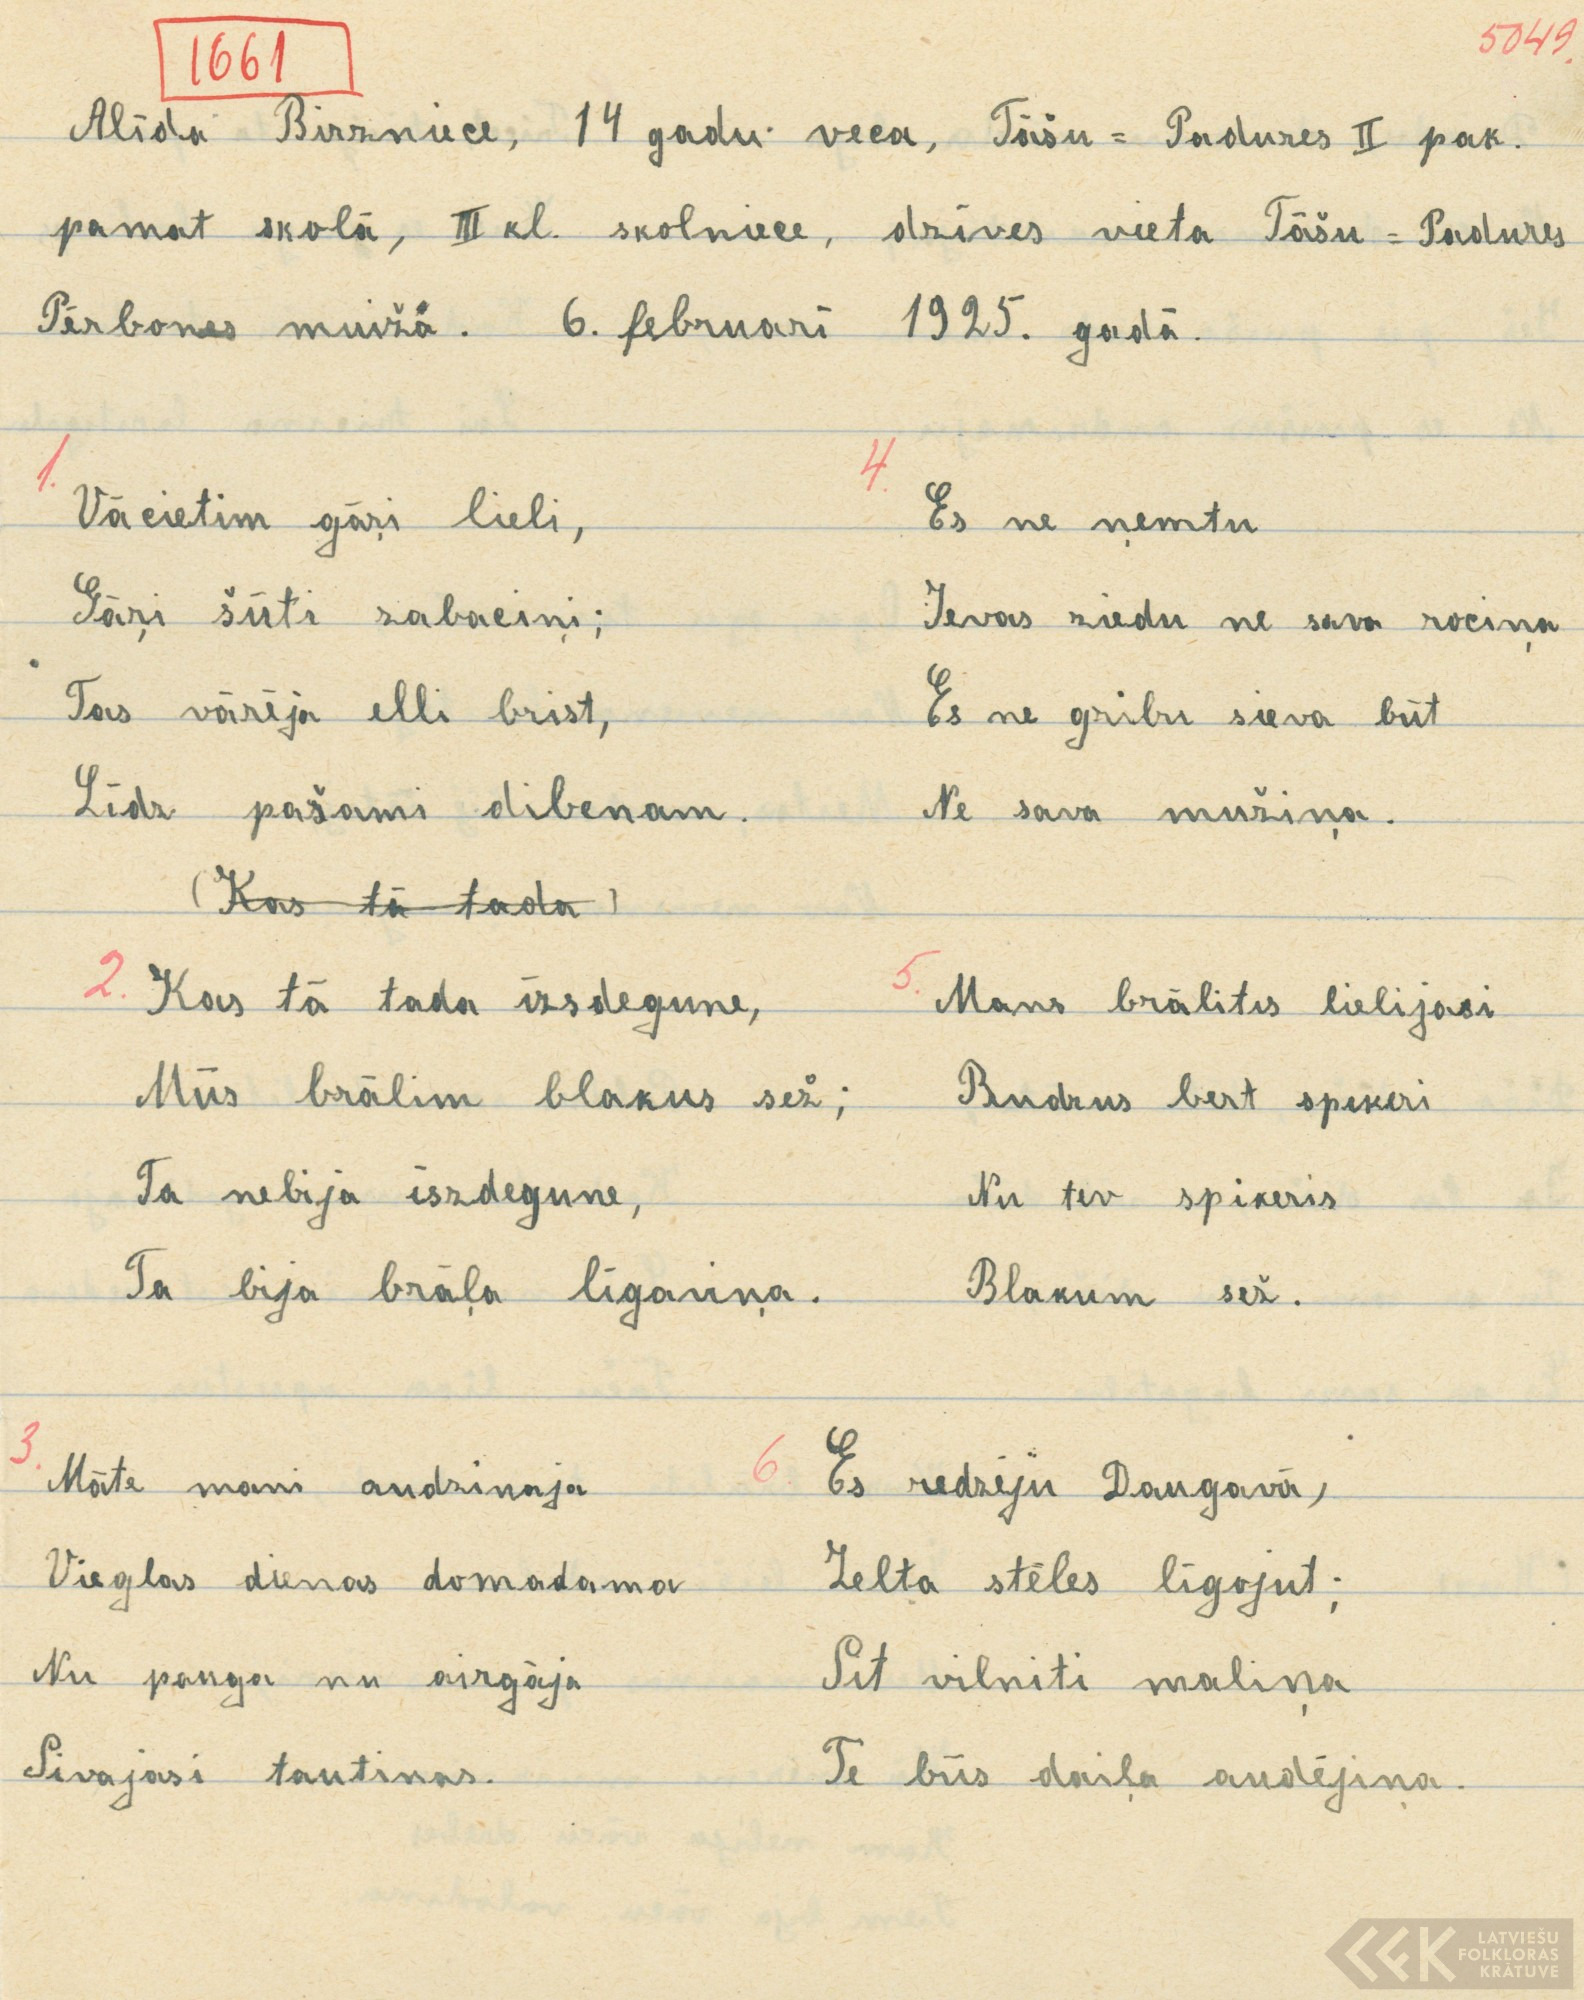 1661
5049.
Alīda Birzniece, 14 gadu veca, Tāšu = Padures II pak.
pamat skolā, III kl. skolniece, dzīves vieta Tāšu = Padures
Pērbones muižā. 6. februarī 1925. gadā.
1.
Vācietim gāŗi lieli,
Gāŗi šūti zabaciņi;
Tas vārēja elli brist,
Līdz pašami dibenam.
(Kas tā tada)
2. Kas tā tada īzsdegune,
Mūs brālim blakus sež;
Ta nebija īszdegune,
Ta bija brāļa līgauiņa.
3. Māte mani audzinaja
Vieglas dienas domadama
Nu pauga nu airgāja
Sivajasi tautinas.
4.
Es ne ņemtu
Ievas ziedu ne sava rociņa
Es ne gribu sieva būt
Ne sava mužiņa.
5. Mans brālitis lielijasi
Rudzus bert spikeri
Nu tev spikeris
Blakum sež.
6 Es redzēju Daugavā,
Zelta stēles līgojut;
Sit vilniti maliņa
Te būs daiļa audējiņa.
LATVIEŠU
FOLKLORAS
KRĀTUVE